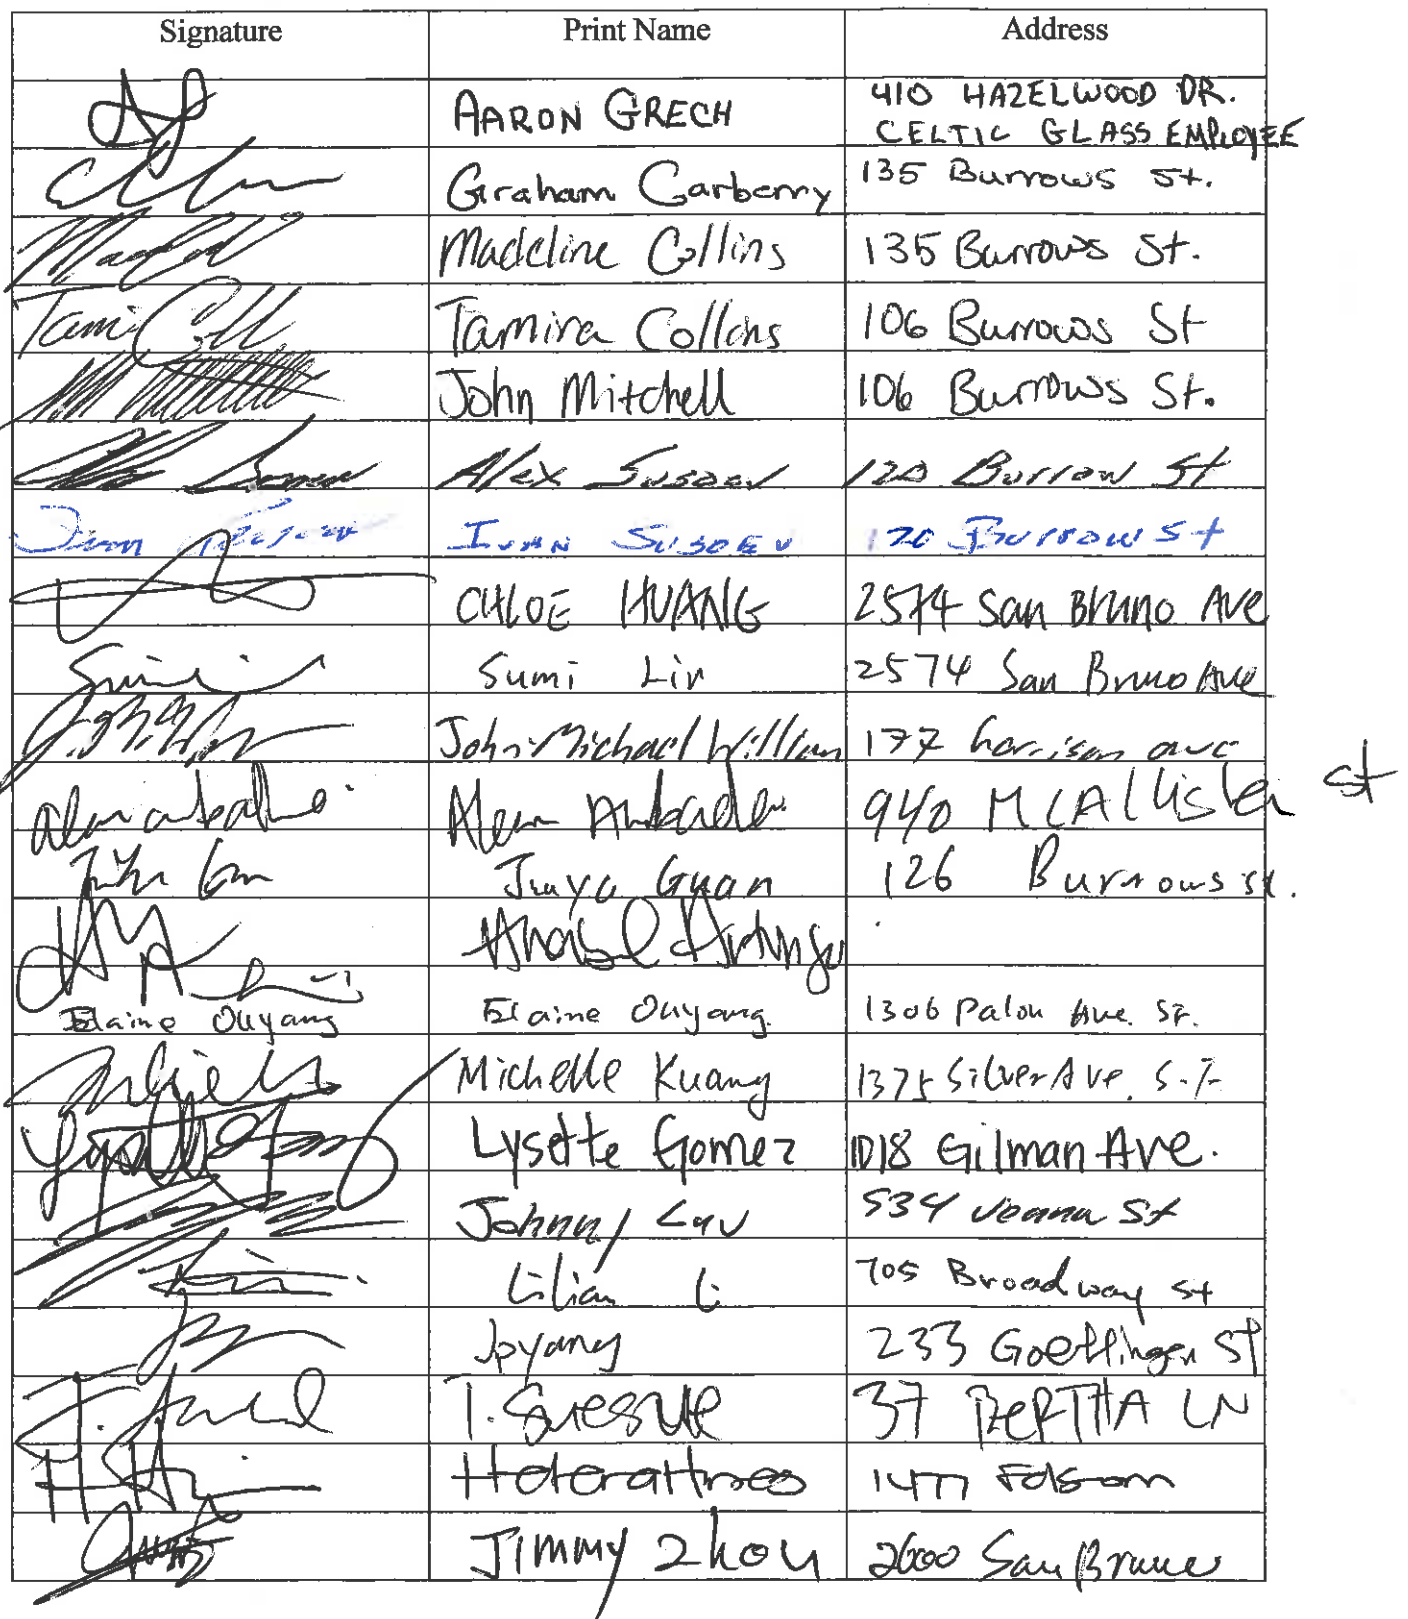 Signature Print Name Address
AARON GRECH 410 HAZELWOOD DR.
CELTIC GLASS EMPLOYEE
Graham Carberry 135 Burrows St.
Madeline Collins 135 Burrows St.
Tami Coll Tamira Collins 106 Burrows St
John Mitchell 106 Burrows St.
Alex Susoev 120 Burrow St
Ivan Susoev IVAN SUSOEV 120 Burrow St
CHLOE HUANG 2574 San Bruno Ave
Sumi Lin 2574 San Bruno Ave
John-Michael William 177 harrison ave
940 McAllister st
Guan 126 Burrows st.
Elaine Ouyang Elaine Ouyang 1306 Palou Ave. SF.
Michelle Kuang 1375 Silver Ave. S.F.
Lysette Gomez 1018 Gilman Ave.
Johnny Lau 534 St
Lilian Li 705 Broadway st
Jpyang 233 Goettingen St
T. 37 BERTHA LN
1477 Folsom
Jimmy Zhou 2600 San Bruno